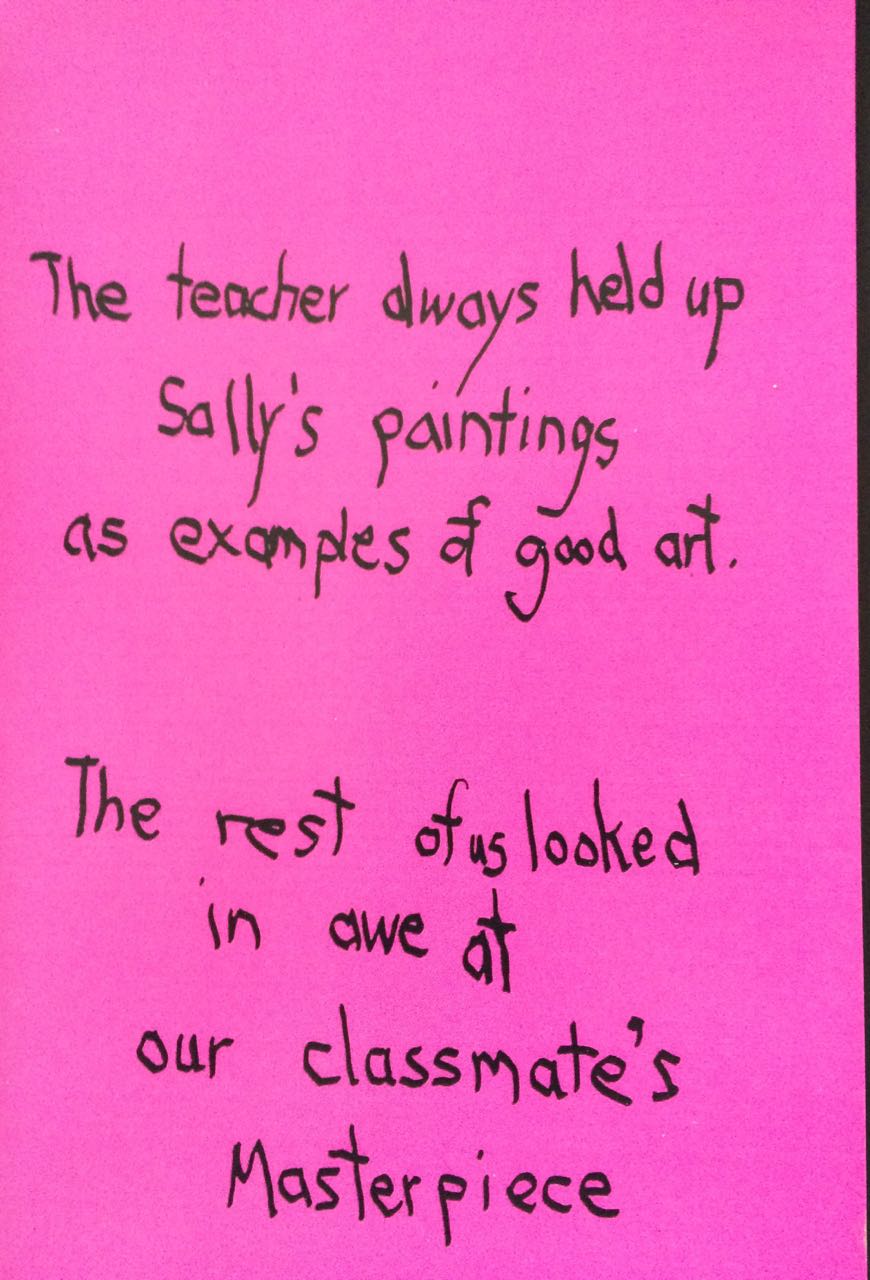 The teacher always held up
Sally's paintings
as examples of good art.
The rest of us looked
in awe at
our classmate's
Masterpiece